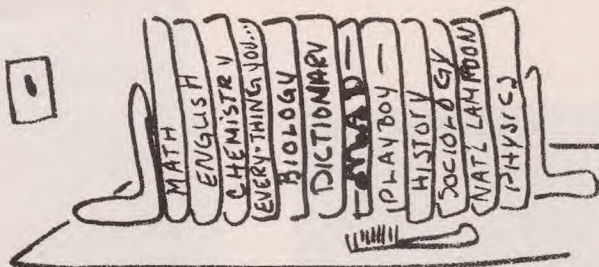 MATH
ENGLISH
CHEMISTRY
EVERY-THING YOU...
BIOLOGY
DICTIONARY
MAD
PLAYBOY
HISTORY
SOCIOLOGY
NAT'L LAMPOON
PHYSICS